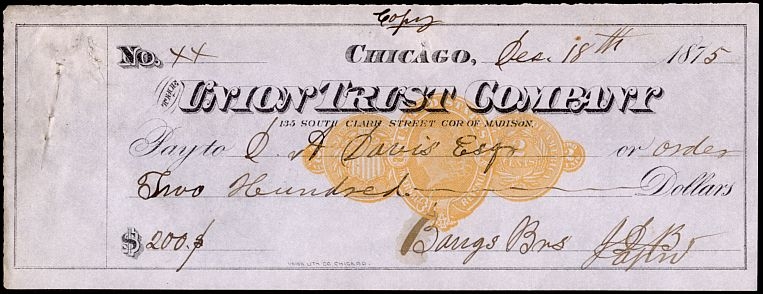 Copy
No. 44 Chicago, Dec. 18th 1875
Union Trust Company
135 South Clark Street Cor of Madison.
Pay to A Davis Esqr or order
Two Hundred Dollars
$ 200.
Bangs Bros